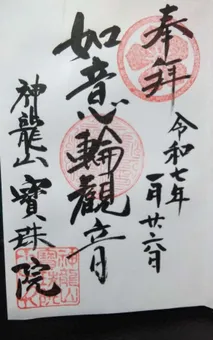 奉拜
令和七年
一月廿六日
如意輪觀音
神龍山 寶珠院